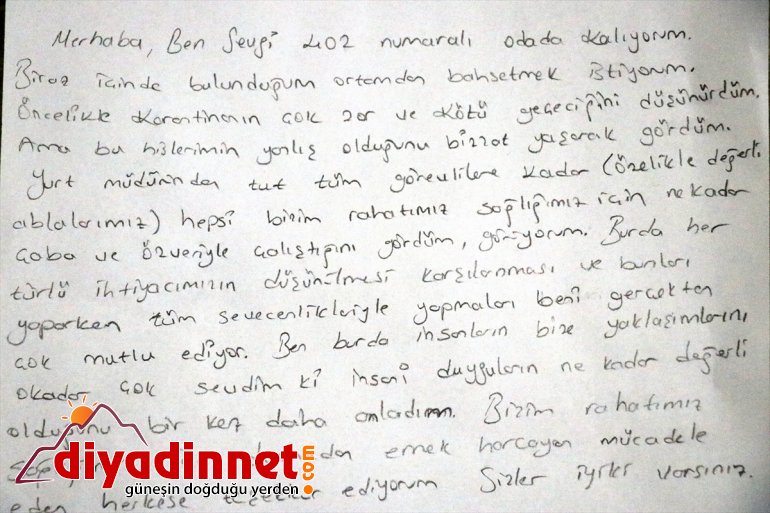 Merhaba, Ben Sevgi 402 numaralı odada kalıyorum.
Biraz içinde bulunduğum ortamdan bahsetmek istiyorum.
Öncelikle karantinanın çok zor ve kötü geçeceğini düşünürdüm.
Ama bu hislerimin yanlış olduğunu bizzat yaşarak gördüm.
Yurt müdüründen tut tüm görevlilere kadar (özelikle değerli
ablalarımız) hepsi bizim rahatımız sağlığımız için ne kadar
çaba ve özveriyle çalıştığını gördüm, görüyorum. Burda her
türlü ihtiyacımızın düşünülmesi karşılanması ve bunları
yaparken tüm sevecenlikleriyle yapmaları beni gerçekten
çok mutlu ediyor. Ben burda insanların bize yaklaşımlarını
okadar çok sevdim ki insani duyguların ne kadar değerli
olduğunu bir kez daha anladım. Bizim rahatımız
emek harcayan mücadele
eden herkese ediyorum Sizler iyiki varsınız.
diyadinnet.com
güneşin doğduğu yerden